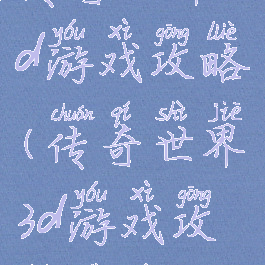 yóu xì gōng lüè
d游戏攻略
chuán qí shì jiè
(传奇世界
yóu xì gōng
3d游戏攻